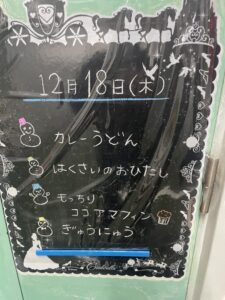 12月18日(木)
カレーうどん
はくさいのおひたし
もっちり
ココアマフィン
ぎゅうにゅう